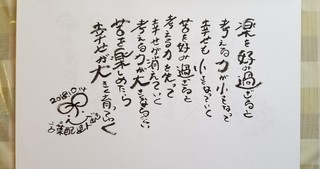 楽を好み過ぎると
考える力が小さなっていく
幸せも小さなっていく
苦を好み過ぎると
考える力を失って
幸せが消えていく
考える力が大きなるくらい
苦を楽しめたら
幸せが大きく育っていく
2018.10.14
言葉配達人